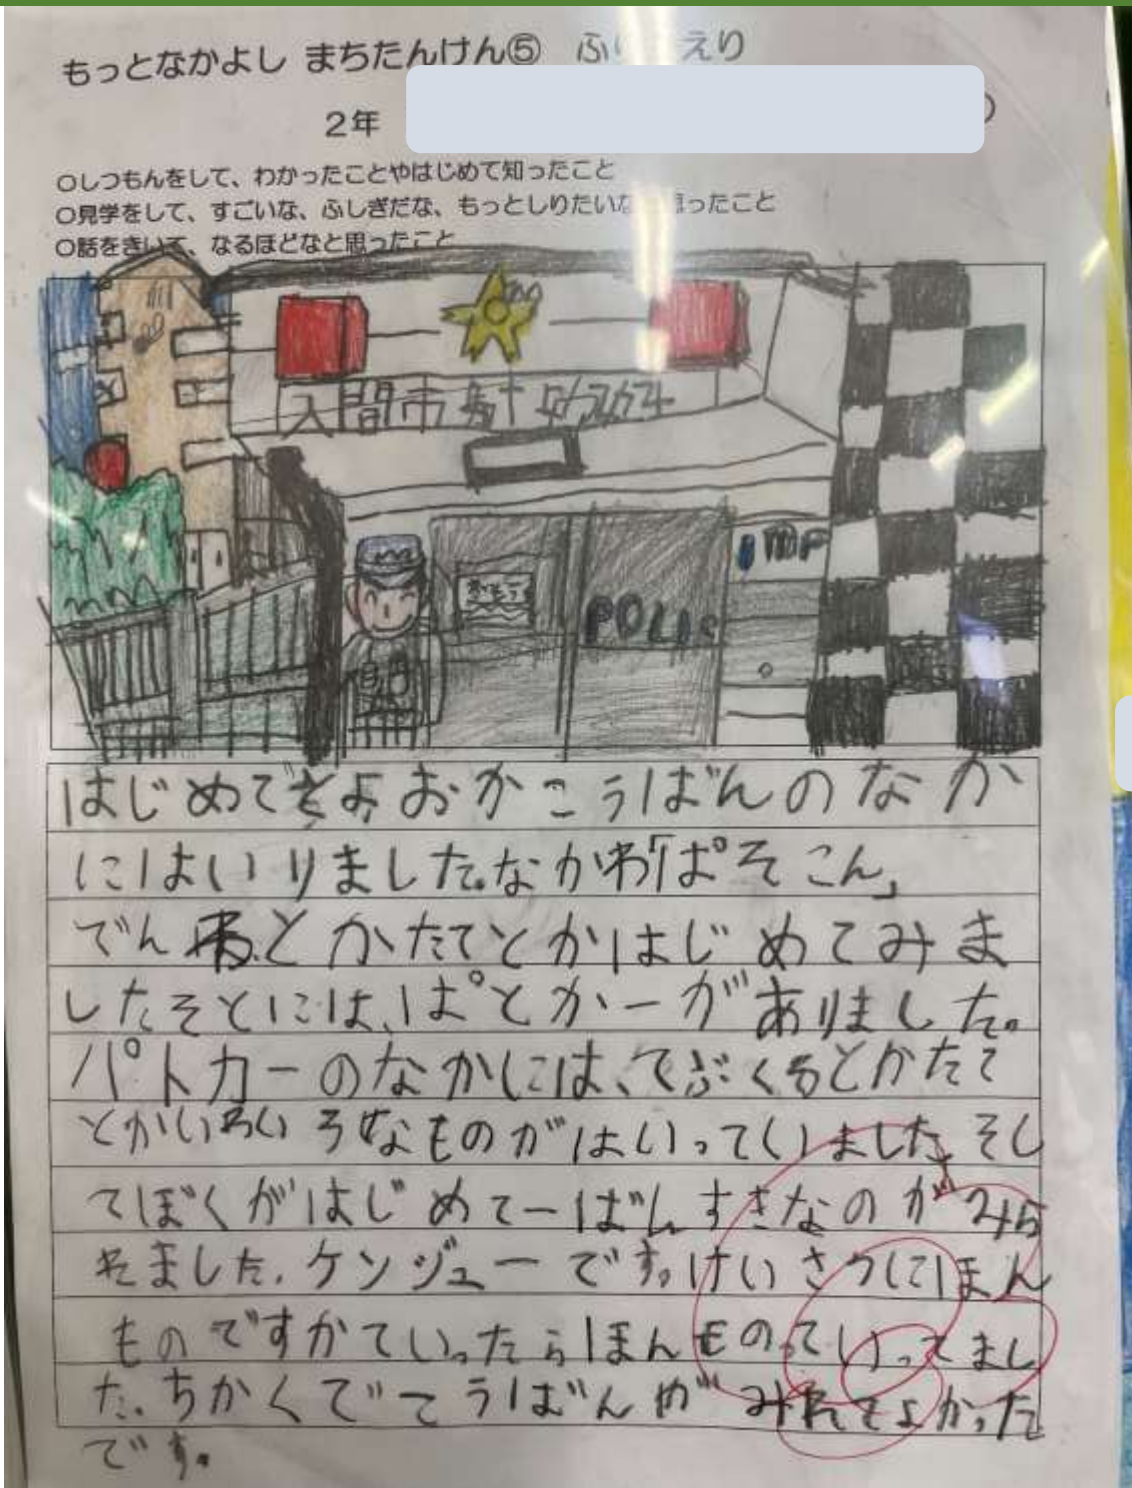 もっとなかよし まちたんけん⑤ ふりかえり
2年
○しつもんをして、わかったことやはじめて知ったこと
○見学をして、すごいな、ふしぎだな、もっとしりたいな 思ったこと
○話をきいて、なるほどなと思ったこと
入間市
POLIC
はじめてとよおかこうばんのなか
にはいりました。なかわ「ぱそこん」
でんわとかたてとかはじめてみま
したそとには、ぱとかーがありました。
パトカーのなかには、てぶくろとかたて
とかいろいろなものがはいっていました、そし
てぼくがはじめてーばんすきなのがみら
れました。ケンジューです。けいさつしにほん
ものですかていったらほんものっていってまし
た。ちかくでこうばんがみれてよかった
です。